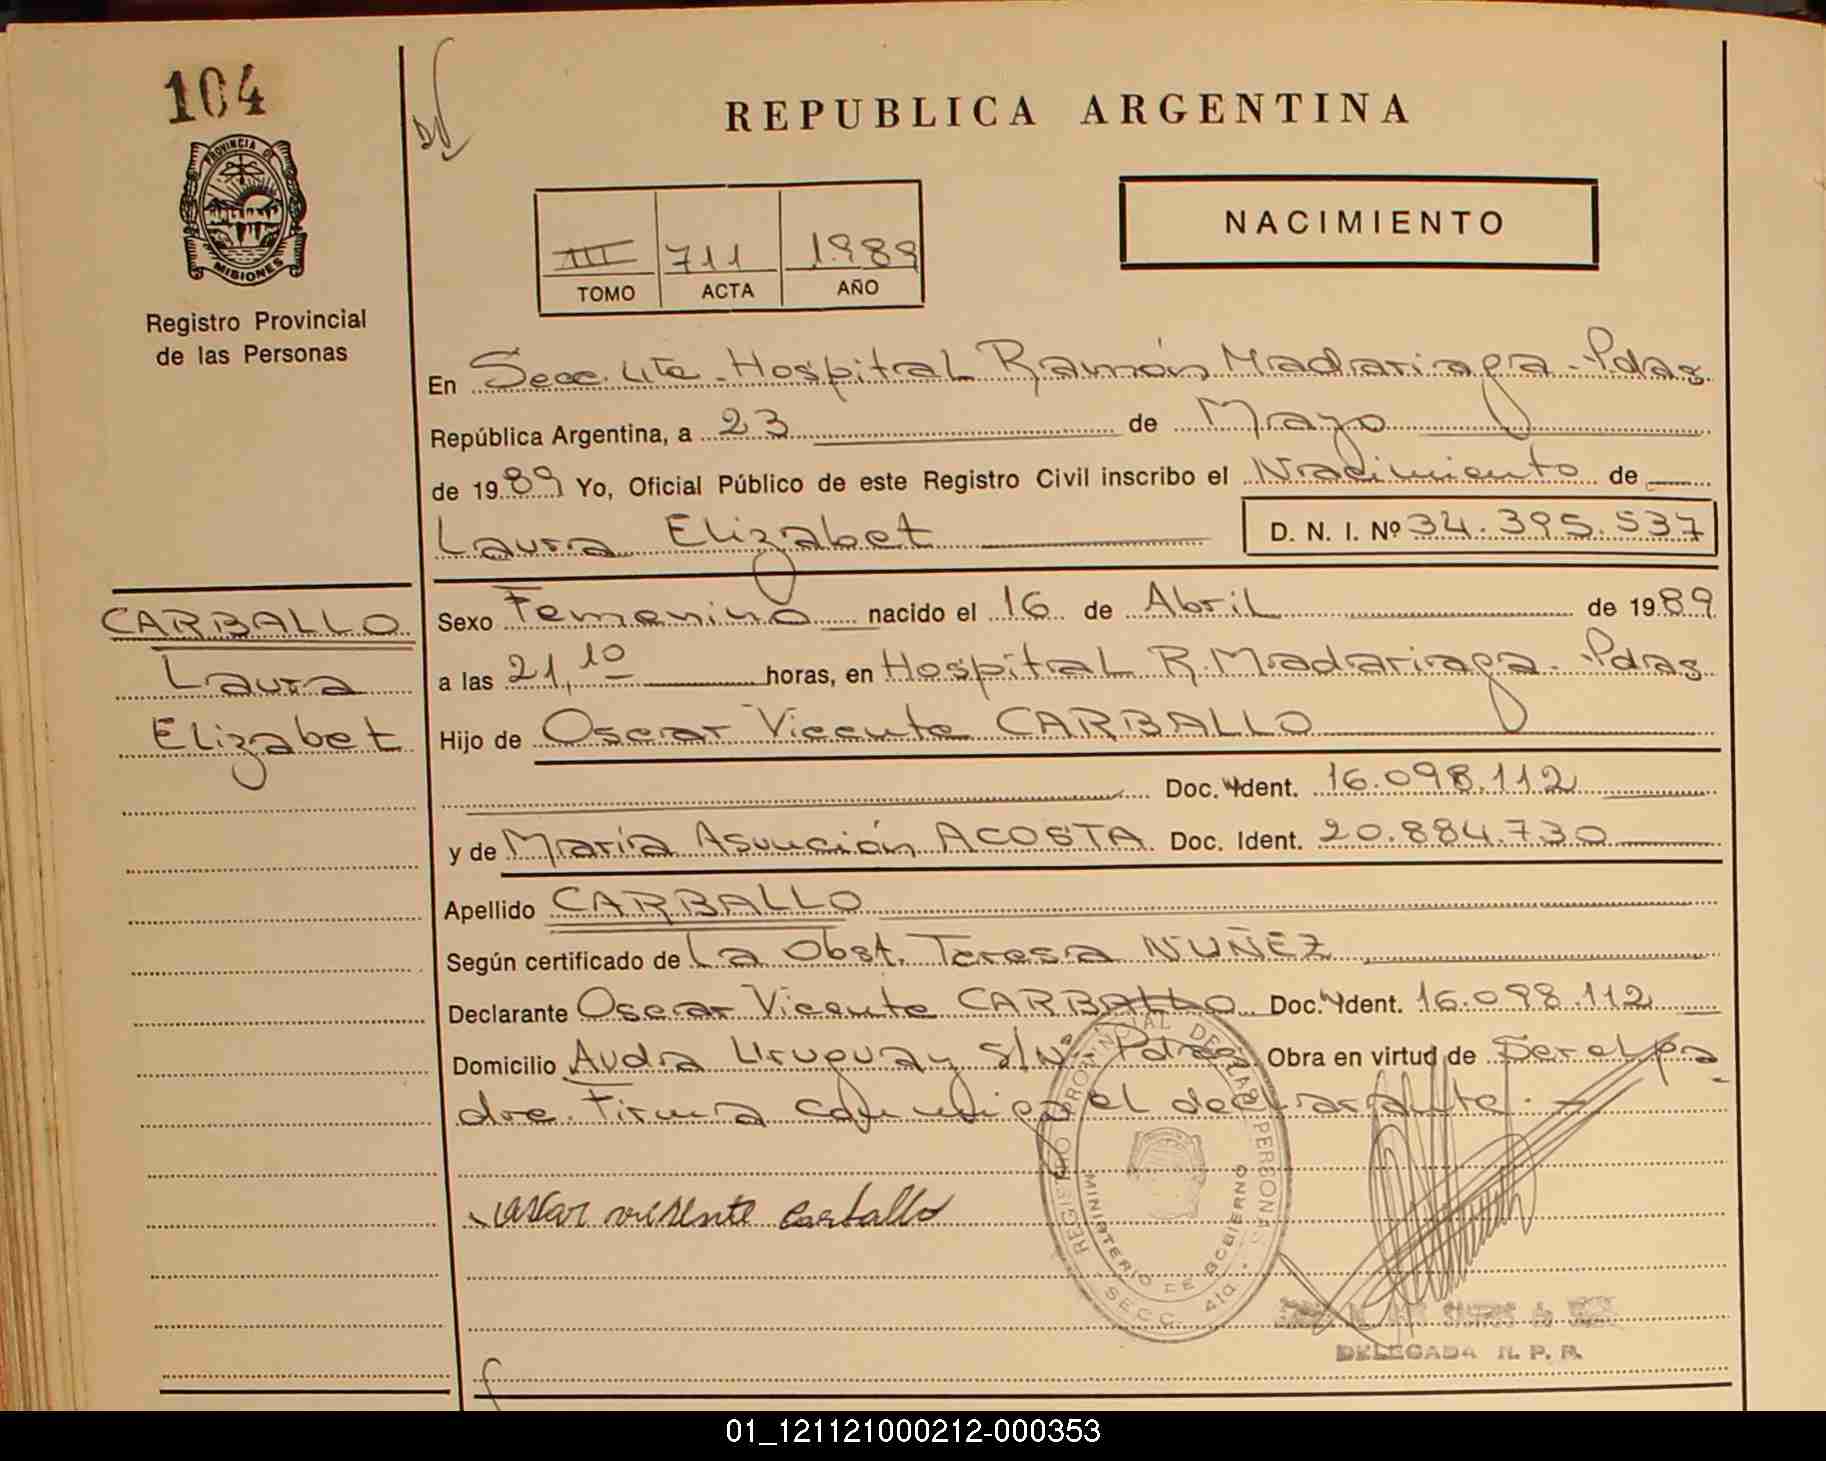 104
PROVINCIA DE
MISIONES
Registro Provincial
de las Personas
REPUBLICA ARGENTINA
NACIMIENTO
III 711 1989
TOMO ACTA AÑO
En Secc. 4ta. Hospital Ramón Madariaga - Pdas
República Argentina, a 23 de Mayo
de 1989 Yo, Oficial Público de este Registro Civil inscribo el Nacimiento de
Laura Elizabet D. N. I. Nº 34.395.537
CARBALLO
Laura
Elizabet
Sexo Femenino nacido el 16 de Abril de 1989
a las 21,10 horas, en Hospital R. Madariaga - Pdas
Hijo de Oscar Vicente CARBALLO
Doc. Ident. 16.098.112
y de María Asunción ACOSTA Doc. Ident. 20.884.730
Apellido CARBALLO
Según certificado de La Obst. Teresa NUÑEZ
Declarante Oscar Vicente CARBALLO Doc. Ident. 16.098.112
Domicilio Avda Uruguay S/Nº Pdas Obra en virtud de Ser el pa
dre. Firma conmigo el declarante. -
oscar visente carballo
REGISTRO PROVINCIAL DE LAS PERSONAS
MINISTERIO DE GOBIERNO
SECC. 4ta.
DELEGADA R. P. P.
01_121121000212-000353